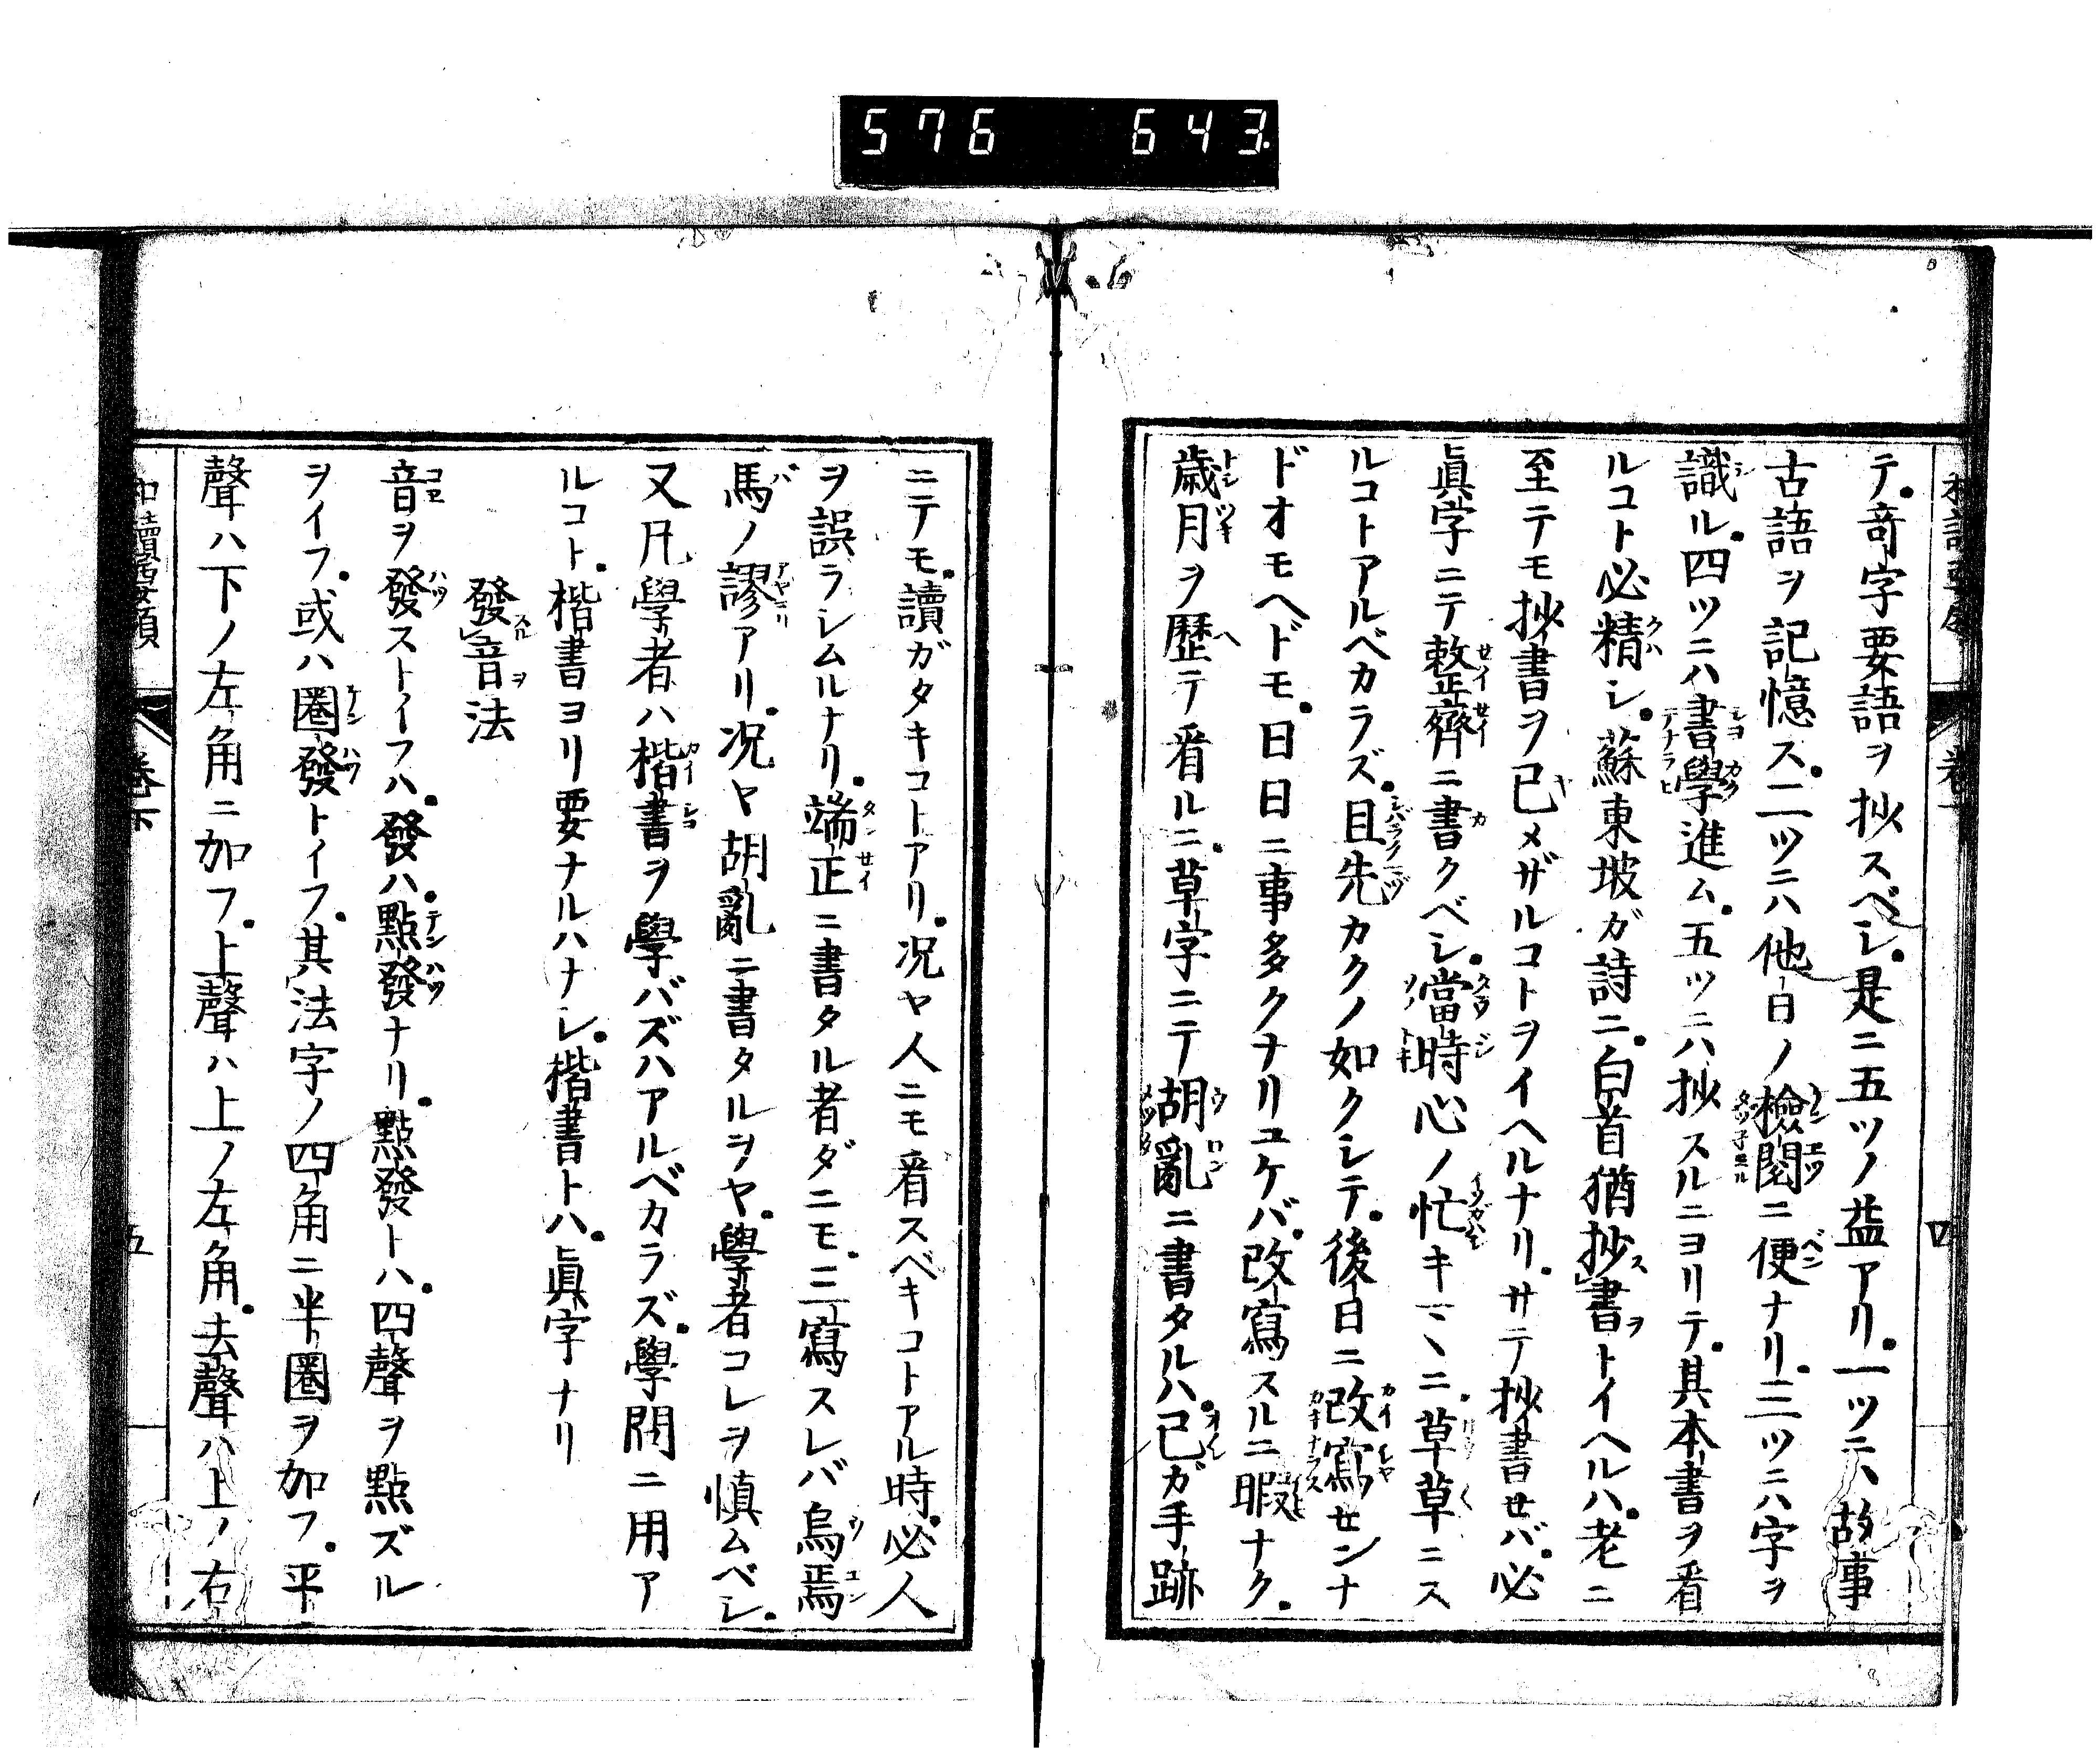 576 643
テ。奇字要語ヲ抄スベシ。是ニ五ツノ益アリ。一ツニハ故事
古語ヲ記憶ス。二ツニハ他日ノ檢閲ニ便ナリ。三ツニハ字ヲ
識ル。四ツニハ書學進ム。五ツニハ抄スルニヨリテ。其本書ヲ看
ルコト必精シ。蘇東坡ガ詩ニ。白首猶抄書トイヘルハ。老ニ
至テモ抄書ヲ已メザルコトヲイヘルナリ。サテ抄書セバ。必
眞字ニテ整齊ニ書クベシ。當時心ノ忙キマヽニ草草ニス
ルコトアルベカラズ。且先カクノ如クシテ。後日ニ改寫センナ
ドオモヘドモ。日日ニ事多クナリユケバ。改寫スルニ暇ナク。
歳月ヲ歴テ看ルニ。草字ニテ胡亂ニ書タルハ。己ガ手跡
ニテモ。讀ガタキコトアリ。况ヤ人ニモ看スベキコトアル時。必人
ヲ誤ラシムルナリ。端正ニ書タル者ダニモ。三寫スレバ烏焉
馬ノ謬アリ。况ヤ胡亂ニ書タルヲヤ。學者コレヲ愼ムベシ。
又凡學者ハ楷書ヲ學バズハアルベカラズ。學問ニ用ア
ルコト。楷書ヨリ要ナルハナシ。楷書トハ。眞字ナリ
發音法
音ヲ發ストイフハ。發ハ。點發ナリ。點發トハ。四聲ヲ點ズル
ヲイフ。或ハ圈發トイフ。其法字ノ四角ニ半圈ヲ加フ。平
聲ハ下ノ左角ニ加フ。上聲ハ上ノ左角。去聲ハ上ノ右
卷下
五